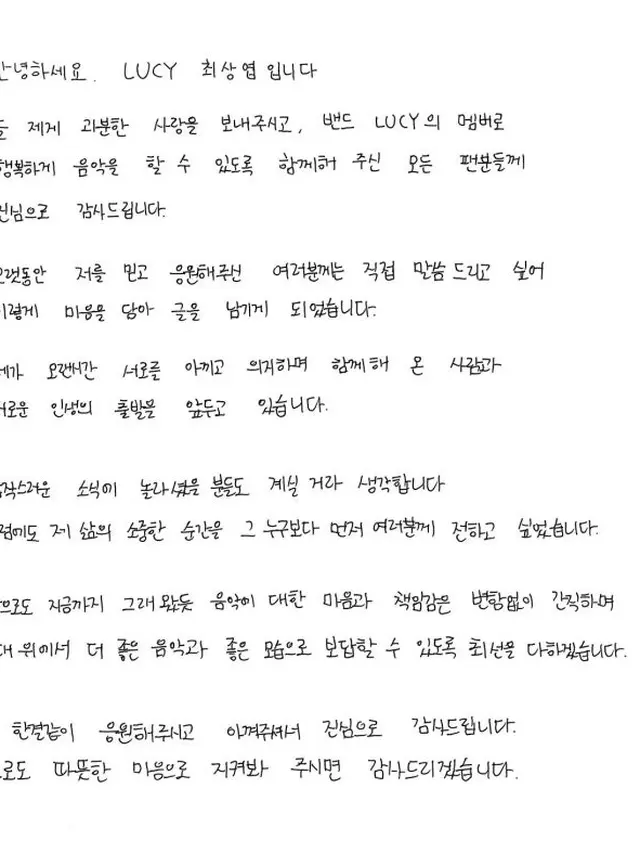 안녕하세요. LUCY 최상엽입니다
늘 제게 과분한 사랑을 보내주시고, 밴드 LUCY의 멤버로
행복하게 음악을 할 수 있도록 함께해 주신 모든 팬분들께
진심으로 감사드립니다.
오랫동안 저를 믿고 응원해주신 여러분께는 직접 말씀드리고 싶어
이렇게 마음을 담아 글을 남기게 되었습니다.
제가 오랜시간 서로를 아끼고 의지하며 함께해 온 사람과
새로운 인생의 출발을 앞두고 있습니다.
갑작스러운 소식에 놀라셨을 분들도 계실 거라 생각합니다
그럼에도 제 삶의 소중한 순간을 그 누구보다 먼저 여러분께 전하고 싶었습니다.
앞으로도 지금까지 그래왔듯 음악에 대한 마음과 책임감은 변함없이 간직하며
무대 위에서 더 좋은 음악과 좋은 모습으로 보답할 수 있도록 최선을 다하겠습니다.
한결같이 응원해주시고 아껴주셔서 진심으로 감사드립니다.
앞으로도 따뜻한 마음으로 지켜봐 주시면 감사드리겠습니다.